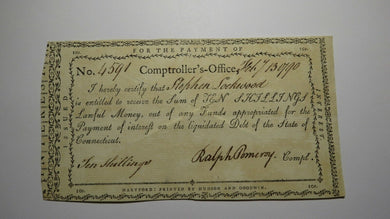 FOR THE PAYMENT OF
No. 4591 Comptroller's-Office, Feb'y 13 1790
I hereby certify that Stephen Lockwood
is entitled to receive the Sum of TEN SHILLINGS
Lawful Money, out of any Funds appropriated for the
Payment of interest on the liquidated Debt of the State of
Connecticut.
Ten Shillings Ralph Pomeroy Compt.
HARTFORD: PRINTED BY HUDSON AND GOODWIN.
ISSUED
INTEREST